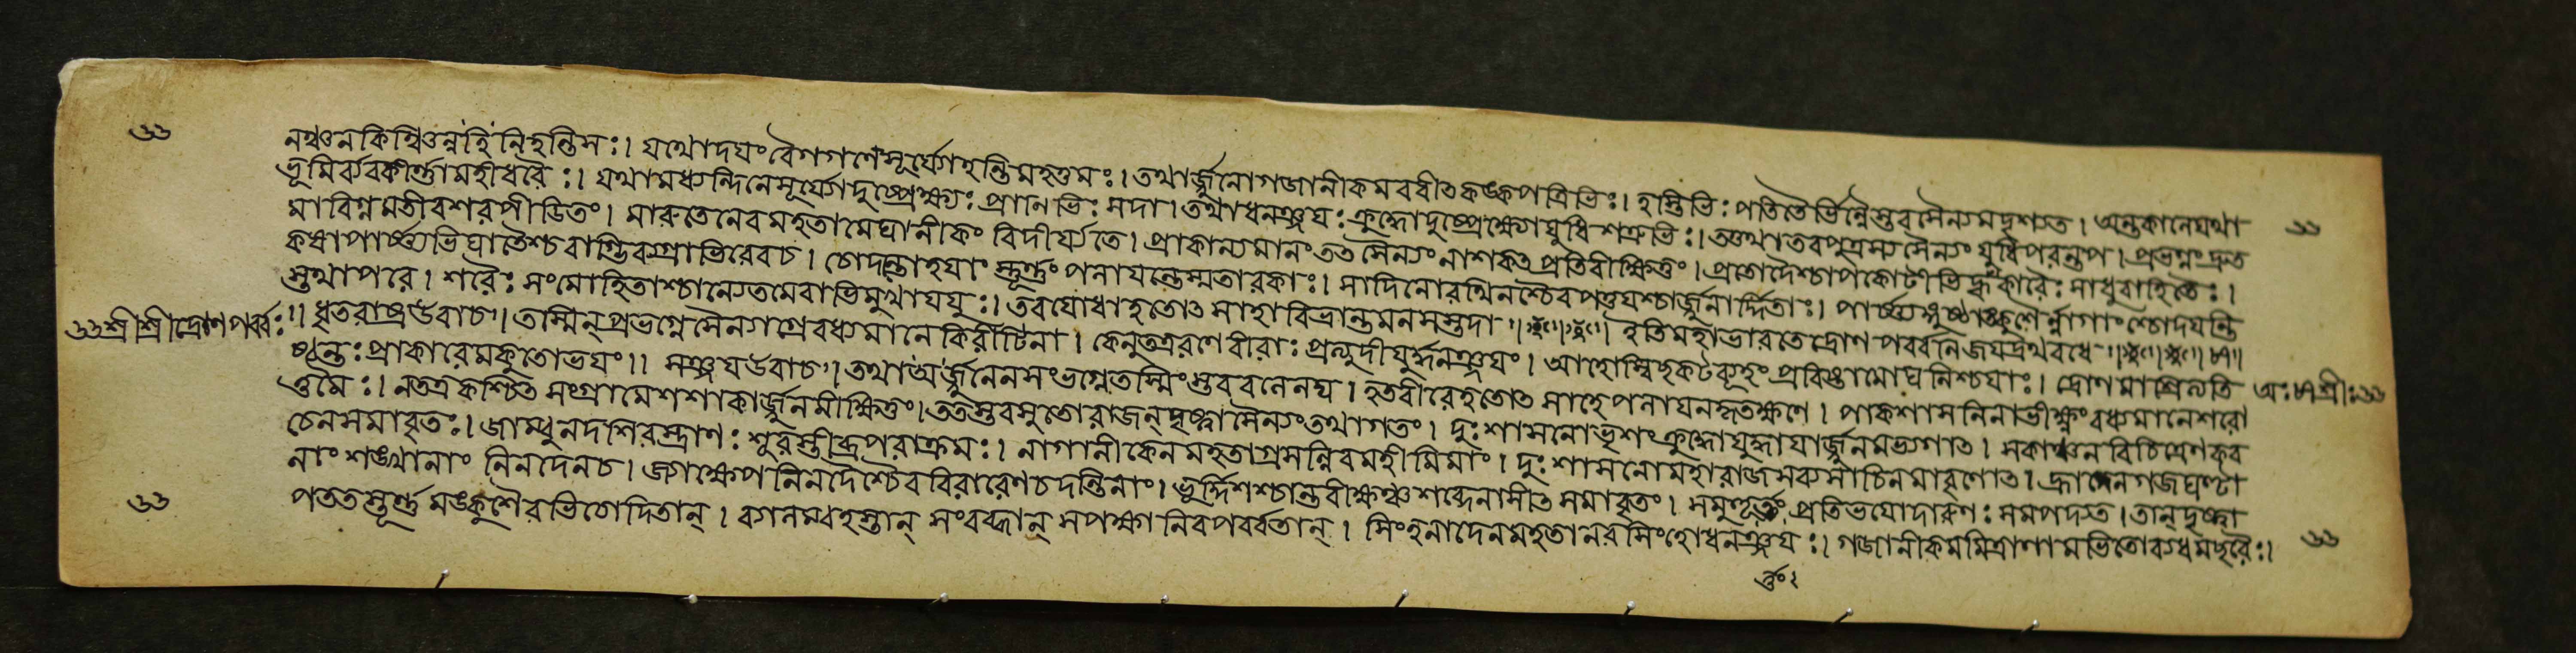 নঞ্চন কিঞ্চিত্তন্নহি নিহন্তি সঃ। যথোদযং বৈ গগণে সূর্য্যো হন্তি মহত্তমঃ। তথার্জ্জুনো গজানীকমবধীত্ত কঙ্কপত্রিভিঃ। হস্তিভিঃ পতিতৈর্ভিন্নৈস্তব সৈন্যমদৃশ্যত। অন্তকালে যথা
ভূমির্ব্যবকীর্ণ্ণা মহীধরৈঃ। যথা মধ্যন্দিনে সূর্য্যো দুষ্প্রেক্ষ্যঃ প্রাণিভিঃ সদা। তথা ধনঞ্জযঃ ক্রুদ্ধো দুষ্প্রেক্ষ্যো যুধি শত্রুভিঃ। তত্তথা তব পুত্রস্য সৈন্যং যুধি পরন্তপ। প্রভগ্নং দ্রুত
মাবিগ্নমতীব শরপীডিতং। মারুতেনেব মহতা মেঘানীকং বিদীর্য্যতে। প্রাকাল্যমানং তত্ত সৈন্যং নাশকৎ প্রতিবীক্ষিতুং। প্রতোদৈশ্চাপকোটীভির্হুঙ্কারৈঃ সাধুবাহিতৈঃ।
কষাপার্ষ্ণ্যভিঘাতৈশ্চ বাগ্ভিরুগ্রাভিরেব চ। চোদযন্তো হযাংস্তূর্ণ্ণং পলাযন্তে স্ম তারকাঃ। সাদিনো রথিনশ্চৈব পত্তযশ্চার্জ্জুনার্দ্দিতাঃ। পার্ষ্ণ্যঙ্গুষ্ঠাঙ্কুশৈর্ন্নাগাংশ্চোদযন্তি
স্তথাপরে। শরৈঃ সংমোহিতাশ্চান্যে তমেবাভিমুখা যযুঃ। তব যোধা হতোৎসাহা বিভ্রান্তমনসস্তদা ॥ ইতি মহাভারতে দ্রোণপর্ব্বনি জযদ্রথবধে ॥৮৭॥
৬৬ শ্রীশ্রীদ্রোণপর্ব্বঃ॥ ধৃতরাষ্ট্র উবাচ॥ তস্মিন্ প্রভগ্নে সৈন্যাগ্রে বধ্যমানে কিরীটিনা। কে নু তত্র রণে বীরাঃ প্রত্যুদীযুর্দ্ধনঞ্জযং। আহোস্বিচ্ছকটব্যূহং প্রবিষ্টা মোঘনিশ্চযাঃ। দ্রোণমাশ্রিত্য তি অঃ ৮৭ শ্রীঃ ৬৬
ষ্ঠন্তঃ প্রাকারমকুতোভযং॥ সঞ্জয উবাচ॥ তথা অর্জ্জুনেন সংভগ্নে তস্মিংস্তব বলেনঘ। হতবীরে হতোৎসাহে পলাযনকৃতক্ষণে। পাকশাসনিনাভীক্ষ্ণং বধ্যমানে শরো
ত্তমৈঃ। ন তত্র কশ্চিৎ সংগ্রামে শশাকার্জ্জুনমীক্ষিতুং। ততস্তব সুতো রাজন্ দৃষ্ট্বা সৈন্যং তথাগতং। দুঃশাসনো ভৃশং ক্রুদ্ধো যুদ্ধাযার্জ্জুনমভ্যগাৎ। স কাঞ্চনবিচিত্রেণ কব
চেন সমাবৃতঃ। জাম্বুনদশিরস্ত্রাণঃ শূরস্তীব্রপরাক্রমঃ। নাগানীকেন মহতা গ্রসন্নিব মহীমিমাং। দুঃশাসনো মহারাজ সব্যসাচিনমাবৃণোৎ। হ্রাদেন গজঘণ্টা
নাং শঙ্খানাং নিনদেন চ। জ্যাক্ষেপনিনদৈশ্চৈব বিরাবেণ চ দন্তিনাং। ভূর্দ্দিশশ্চান্তরীক্ষঞ্চ শব্দেনাসীৎ সমাবৃতং। স মুহূর্ত্তং প্রতিভযো দারুণঃ সমপদ্যত। তান্ দৃষ্ট্বা
পততস্তূর্ণ্ণমঙ্কুশৈরভিচোদিতান্। ব্যালম্বহস্তান্ সংরব্ধান্ সপক্ষানিব পর্ব্বতান্। সিংহনাদেন মহতা নরসিংহো ধনঞ্জযঃ। গজানীকমমিত্রাণামভিতো ব্যধমচ্ছরৈঃ।
র্ত্তং।
৬৬
৬৬
৬৬
৬৬